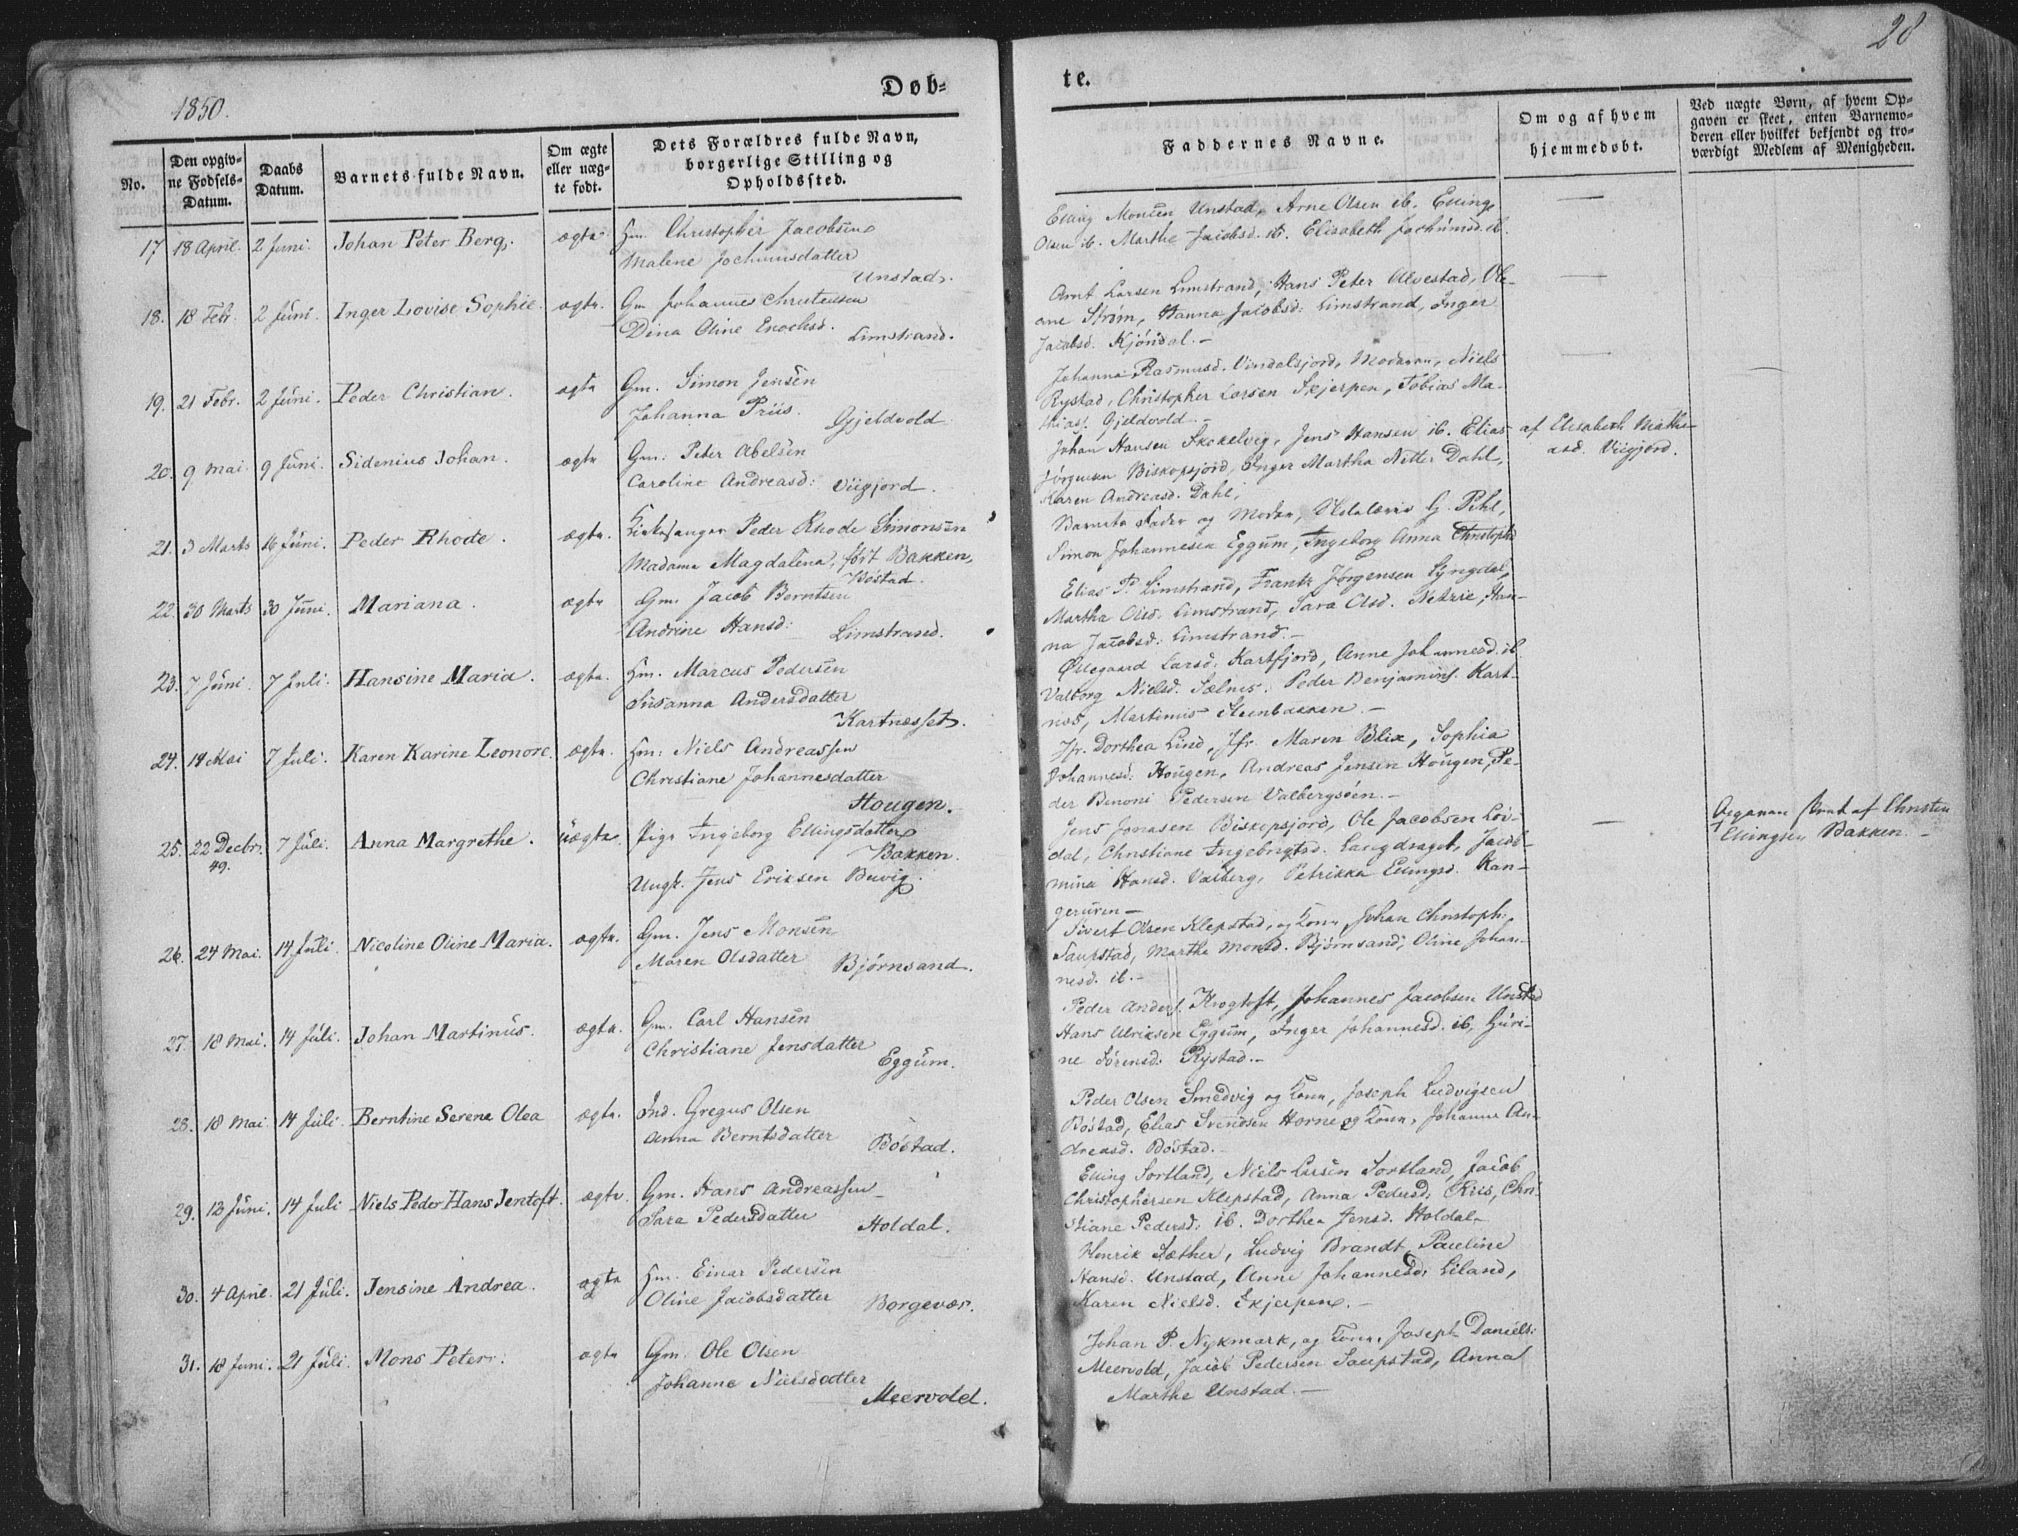 28
1850.
Døb-
te.
No.
Den opgiv-
ne Fødsels-
Datum.
Daabs
Datum.
Barnets fulde Navn.
Om ægte
eller næg-
te født.
Dets Forældres fulde Navn,
borgerlige Stilling og
Opholdssted.
Faddernes Navne.
Om og af hvem
hjemmedøbt.
Ved nægte Børn, af hvem Op-
gaven er skeet, enten Barnemo-
deren eller hvilket bekjendt og tro-
værdigt Medlem af Menigheden.
17 18 April. 2 Juni. Johan Peter Berg. ægte Hm. Christopher Jacobsen
Malene Jochumsdatter
Unstad.
Elling Monsen Unstad, Arne Olsen ib. Elling
Olsen ib. Marthe Jacobsd. ib. Elisabeth Jochumsd. ib.
18. 18 Febr. 2 Juni. Inger Lovise Sophie. ægte. Gm Johannes Christensen
Dina Oline Enochsd. Limstrand.
Arnt Larsen Limstrand, Hans Peter Alvestad, Ole-
ane Strøm, Hanna Jacobsd: Limstrand, Inger
Jacobsd. Kjøndal. -
19. 21 Febr. 2 Juni. Peder Christian. ægte Gm. Simon Jensen
Johanna Priis. Gjeldvold
Johanna Rasmusd. Vindalsjord, Moderen, Niels
Rystad, Christopher Larsen Skjerpen, Tobias Ma-
thiass. Gjeldvold. -
20. 9 Mai 9 Juni. Sidenius Johan. ægte Gm: Peter Abelsen
Caroline Andreasd: Viigjord.
Johan Hansen Skokelvig, Jens Hansen ib. Elias
Jørgensen Biskopsjord, Inger Martha Netter Dahl,
Karen Andreasd. Dahl,
af Elisabeth Mathi-
asd. Viigjord.
21. 3 Marts 16 Juni. Peder Rhode. ægte. Kirkesanger Peder Rhode Simonsen
Madame Magdalena, født Bakken,
Bøstad.
Barnets Fader og Moder, Skolelærer G. Pihl,
Simon Johannesen Eggum, Ingeborg Anna Christophd
22. 30 Marts 30 Juni. Mariana. ægte Gm. Jacob Berntsen
Andrine Hansd: Limstrand.
Elias P. Limstrand, Frantz Jørgensen Lyngdal,
Martha Olsd. Limstrand, Sara Olsd. Netzie, Han-
na Jacobsd: Limstrand. -
23. 7 Juni. 7 Juli. Hansine Maria. ægte. Hm. Marcus Pedersen
Susanna Andersdatter
Kartnæsset.
Ollegaard Larsd: Kartfjord, Anne Johannesd. ib
Valborg Nielsd. Sælnes. Peder Benjamins. Kart-
nes, Martinus Steenbakken. -
24. 14 Mai 7 Juli. Karen Karine Leonore. ægte. Hm: Niels Andreassen
Christiane Johannesdatter
Hougen.
Jfr. Dorthea Lind, Jfr. Maren Blix, Sophia
Johannesd: Hougen, Andreas Jensen Hougen, Pe-
der Benoni Pedersen Valbergsøen. -
25. 22 Decbr. 7 Juli. Anna Margrethe. uægte. Pige Ingeborg Ellingsdatter
49.
Bakken.
Ungk. Jens Eriksen Buvig.
Jens Jonasen Biskopsjord, Ole Jacobsen Loi-
dal, Christiane Ingebrigtsd. Langdraget, Jacob-
mina Hansd. Valberg, Petrikka Ellingsd. Ran-
geruren -
Opgaven skeet af Christen
Ellingsen Bakken. -
26. 24 Mai. 14 Juli. Nicoline Oline Maria. ægte. Gm. Jens Monsen
Maren Olsdatter Bjørnsand.
Sivert Olsen Klepstad, og Kone, Johan Christoph:
Saupstad, Marthe Monsd. Bjørnsand, Oline Johan-
nesd. ib. -
27. 18 Mai. 14 Juli. Johan Martinus. ægte. Gm. Carl Hansen
Christiane Jensdatter
Eggum.
Peder Anders. Krogtoft, Johannes Jacobsen Unstad
Hans Ulriksen Eggum, Inger Johannesd. ib, Guri-
ne Sørensd. Rystad. -
28. 18 Mai 14 Juli. Berntine Serene Olea ægte. Ind. Gregus Olsen
Anna Berntsdatter Bøstad.
Peder Olsen Smedvig og Kone, Joseph Ludvigsen
Bøstad, Elias Svendsen Horne og Kone, Johanna An-
dreasd. Bøstad. -
29. 12 Juni. 14 Juli Niels Peder Hans Jentoft. ægte. Gm. Hans Andreassen
Sara Pedersdatter Holdal.
Elling Sortland, Niels Larsen Sortland, Jacob
Christophersen Klepstad, Anna Pedersd: Kris, Chri-
stiane Pedersd: ib. Dorthea Jensd. Holdal.
30. 4 April. 21 Juli. Jensine Andrea. ægte Hm. Einar Pedersen
Oline Jacobsdatter Borgevær.
Henrik Sæther, Ludvig Brandt, Pauline
Hansd. Unstad, Anne Johannesd: Liland,
Karen Nielsd. Skjerpen. -
31. 18 Juni. 21 Juli. Mons Peter. ægte Gm. Ole Olsen
Johanne Nielsdatter
Meervold.
Johan P. Nykmark, og Kone, Joseph Daniels:
Meervold, Jacob Pedersen Saupstad, Anna
Marthe Unstad. -